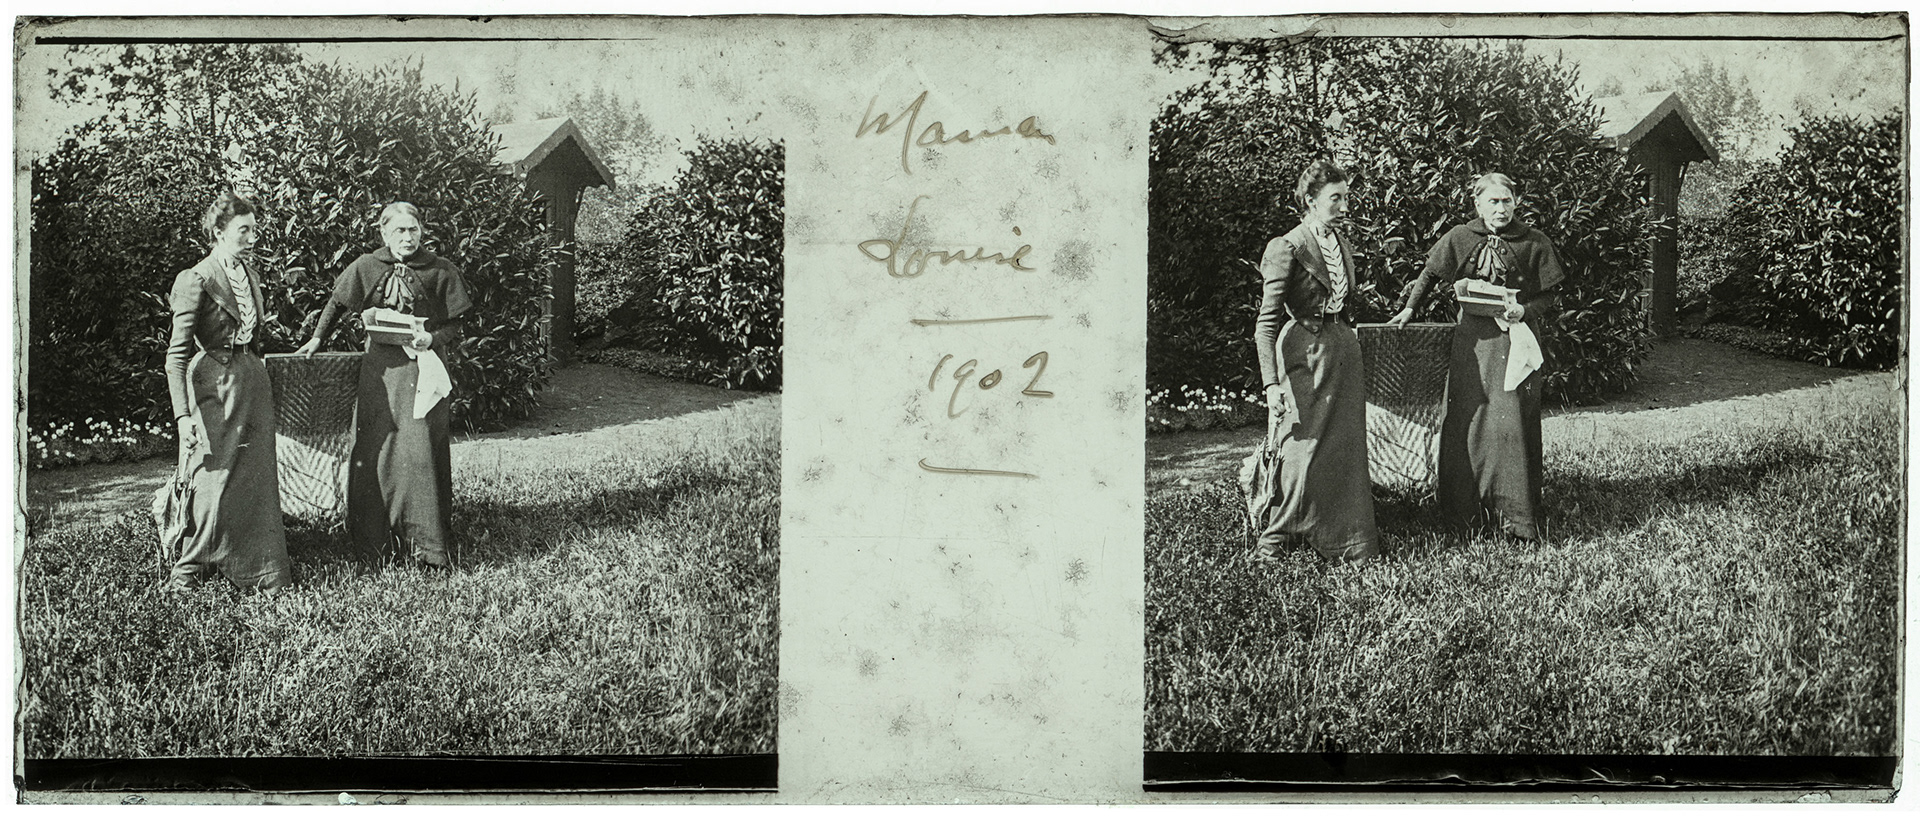 Maman
Louise
1902